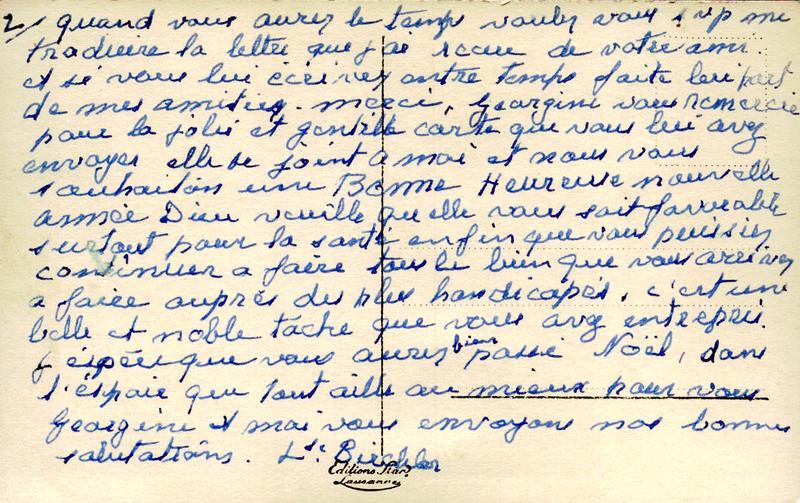 2/ quand vous aurez le temps voulez vous s vp me
traduire la lettre que j'ai recue de votre ami
et si vous lui écrivez entre temps faite lui part
de mes amitiés. merci, Georgine vous remercie
pour la jolie et gentille carte que vous lui avez
envoyer elle se joint a moi et nous vous
souhaiton une Bonne Heureuse nouvelle
année Dieu veuille qu elle vous soit favorable
surtout pour la santé enfin que vous puissiez
continuer a faire tous le bien que vous arrivez
a faire auprés des plus handicapés, c'est une
belle et noble tâche que vous avez entrepris.
J éspére que vous aurez bien passé Noël, dans
l'éspoir que tout aille au mieux pour vous
Georgine et moi vous envoyons nos bonnes
salutations. Lse
Editions Star
Lausanne